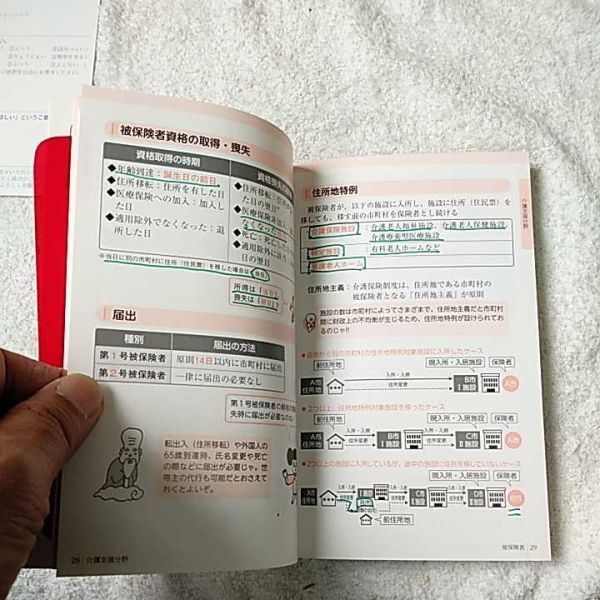 被保険者資格の取得・喪失
資格取得の時期
◆年齢到達：誕生日の前日
◆住所移転：住所を有した日
◆医療保険への加入：加入した日
◆適用除外でなくなった：退所した日
資格喪失の
◆住所移転：住
日の翌日
◆医療保険非加
なくなった
◆死亡：死亡した
◆適用除外
の翌日
※当日に別の市町村に住所（住民票）を移した場合は当日
所得は「当日」
喪失は「翌日」
届出
種別
届出の方法
第1号被保険者
原則14日以内に市町村に届出
第2号被保険者
一律に届出の必要なし
第1号被保険者の
失時に届出が必要な
転出入（住所移転）や外国人の
65歳到達時、氏名変更や死亡
の際などに届出が必要じゃ。世
帯主の代行も可能だとおさえて
おくとよいぞ。
28 介護支援分野
住所地特例
被保険者が、以下の施設に入所し、施設に住所（住民票）を
移しても、移す前の市町村を保険者とし続ける
介護保険施設：介護老人福祉施設、介護老人保健施設、
介護療養型医療施設
特定施設：有料老人ホームなど
養護老人ホーム
介護支援分野
住所地主義：介護保険制度は、住所地である市町村の
被保険者となる「住所地主義」が原則
施設の数は市町村によってさまざまで、住所地主義だと市町村
間に財政上の不均衡が生じるため、住所地特例が設けられて
おるのじゃ!!
●自宅から別の市町村の住所地特例対象施設に入所したケース
前住所地
現入所・入居施設
保険者
A市
住所地
入所・入居
住所変更
B市
Ⅰ施設
A市
●2つ以上、住所地特例対象施設を移ったケース
前住所地
現入所・入居施設
保険者
A市
住所地
入所・入居
住所変更
B市
Ⅰ施設
入所・入居
住所変更
C市
Ⅱ施設
A市
●2つ以上の施設に入所しているが、途中の施設に住所を移していないケース
現入所・入居施設
保険者
A市
住所地
入所・入居
B市
C市
Ⅱ施設
D市
B市
前住所地
被保険者 29